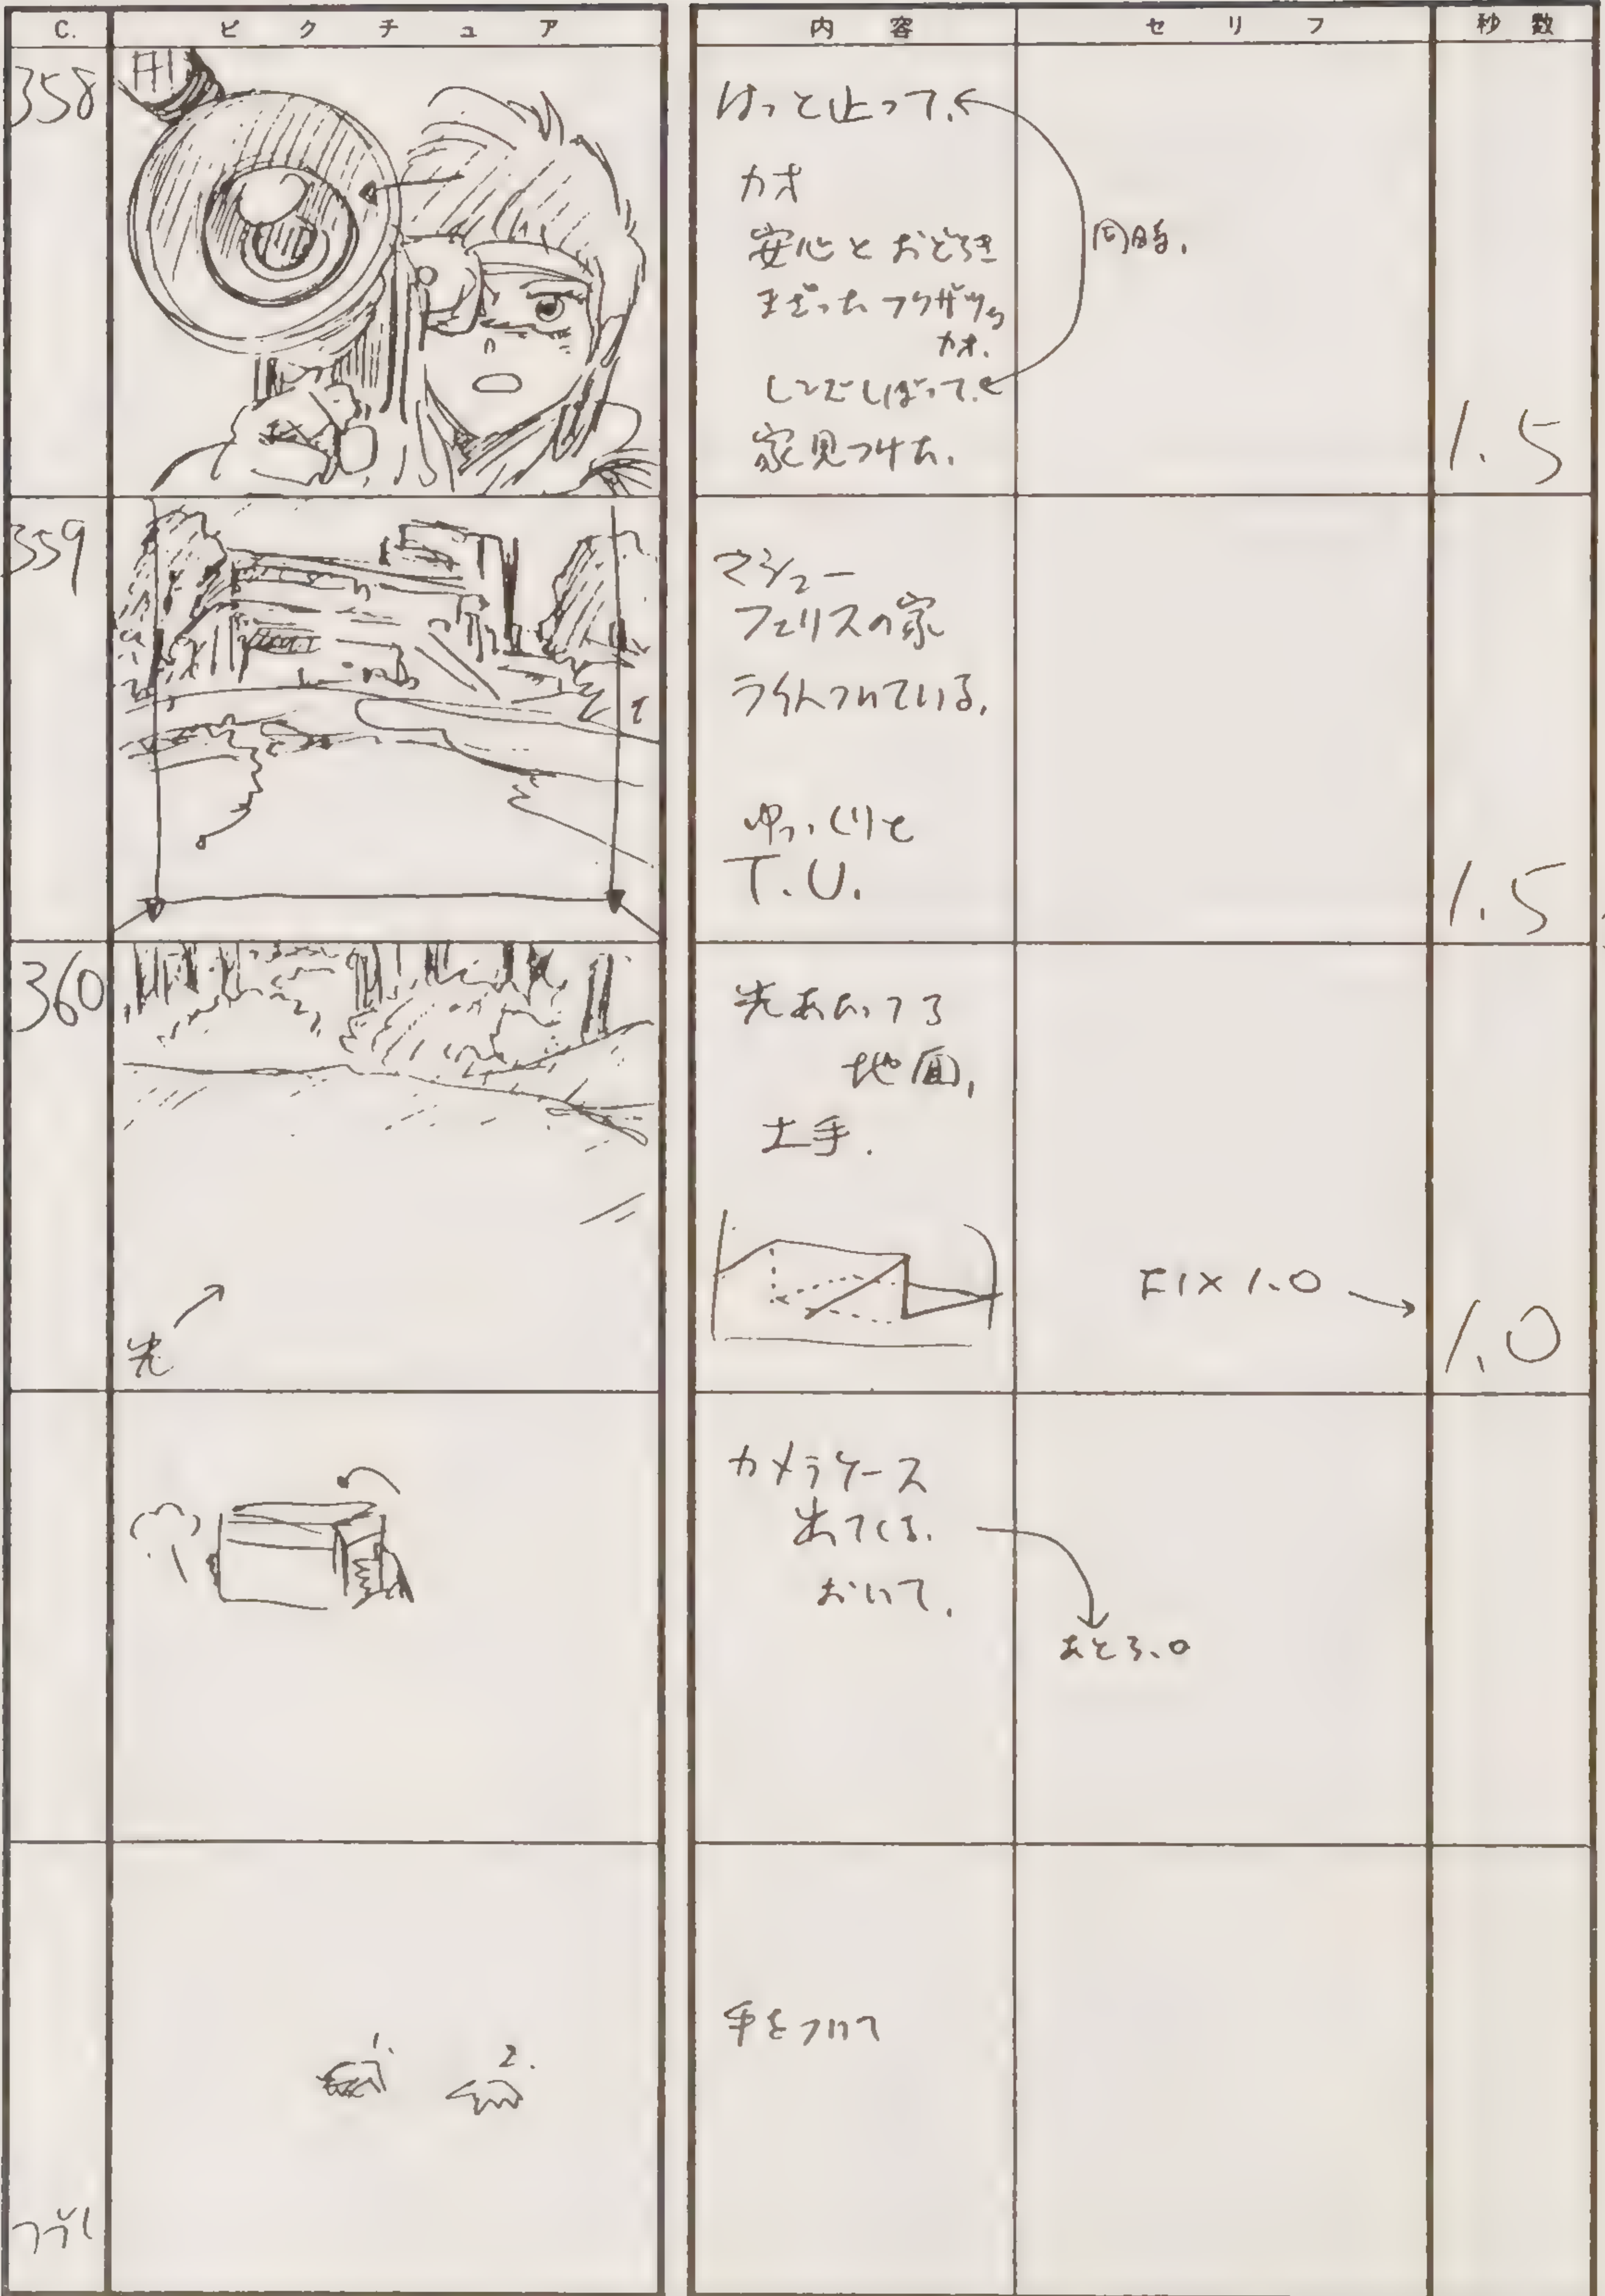 C. ピクチュア 内容 セリフ 秒数
358
はっと止って、
カオ
安心とおどろき
まざったフクザツな
カオ、
しこむしばって、
家見つけた、
同時、
1.5
359
マシュー
フェリスの家
ライトついている、
ゆっくりと
T.U.
1.5
360
光
光あたってる
地面、
土手、
FIX 1.0
1.0
カメラケース
出てくる、
おいて、
あと3.0
1.
2.
手をついて
つづく